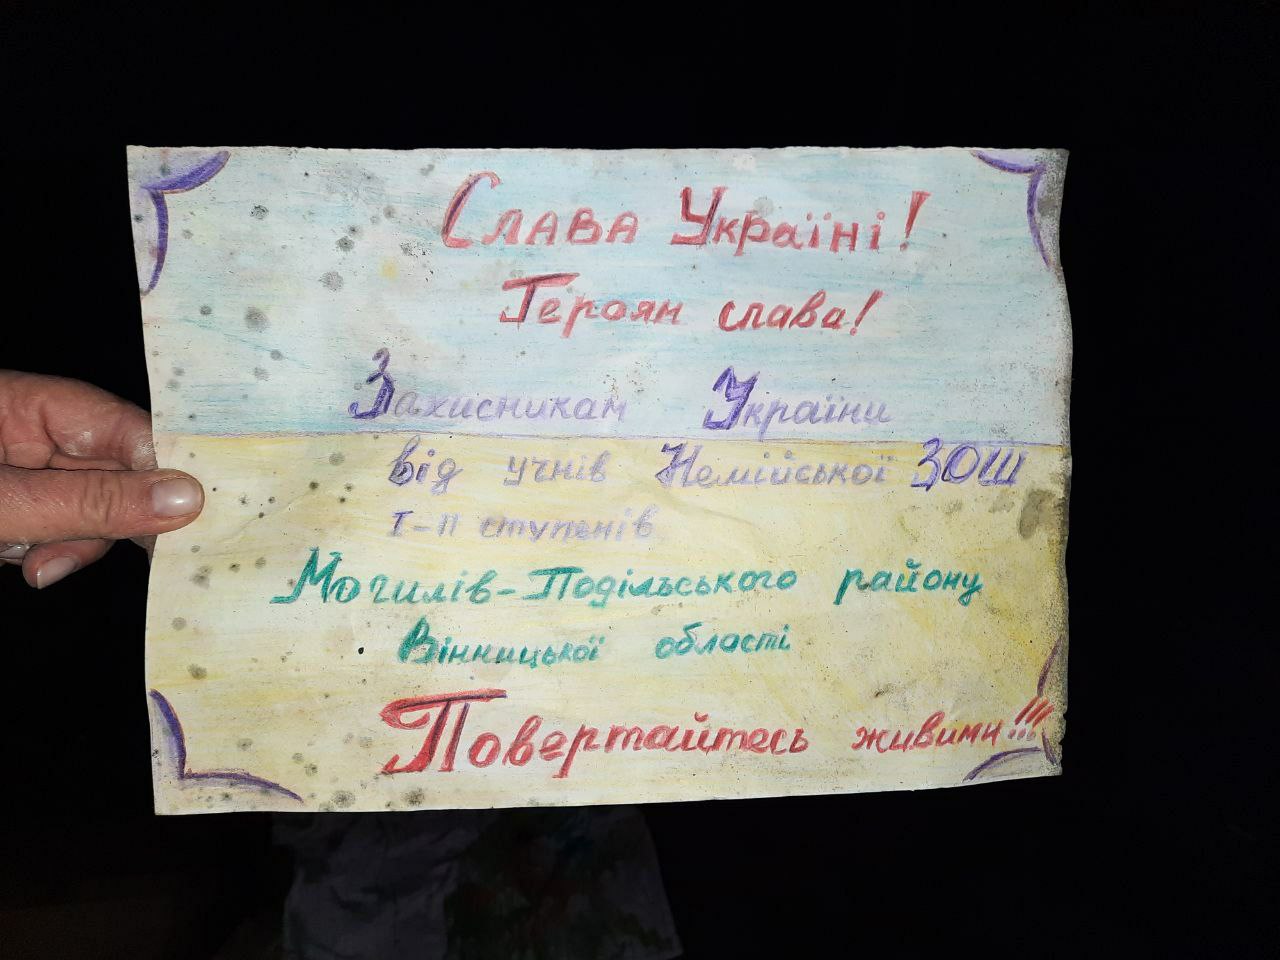 Слава Україні!
Героям слава!
Захисникам України
від учнів Немійської ЗОШ
І-ІІ ступенів
Могилів-Подільського району
Вінницької області
Повертайтесь живими!!!